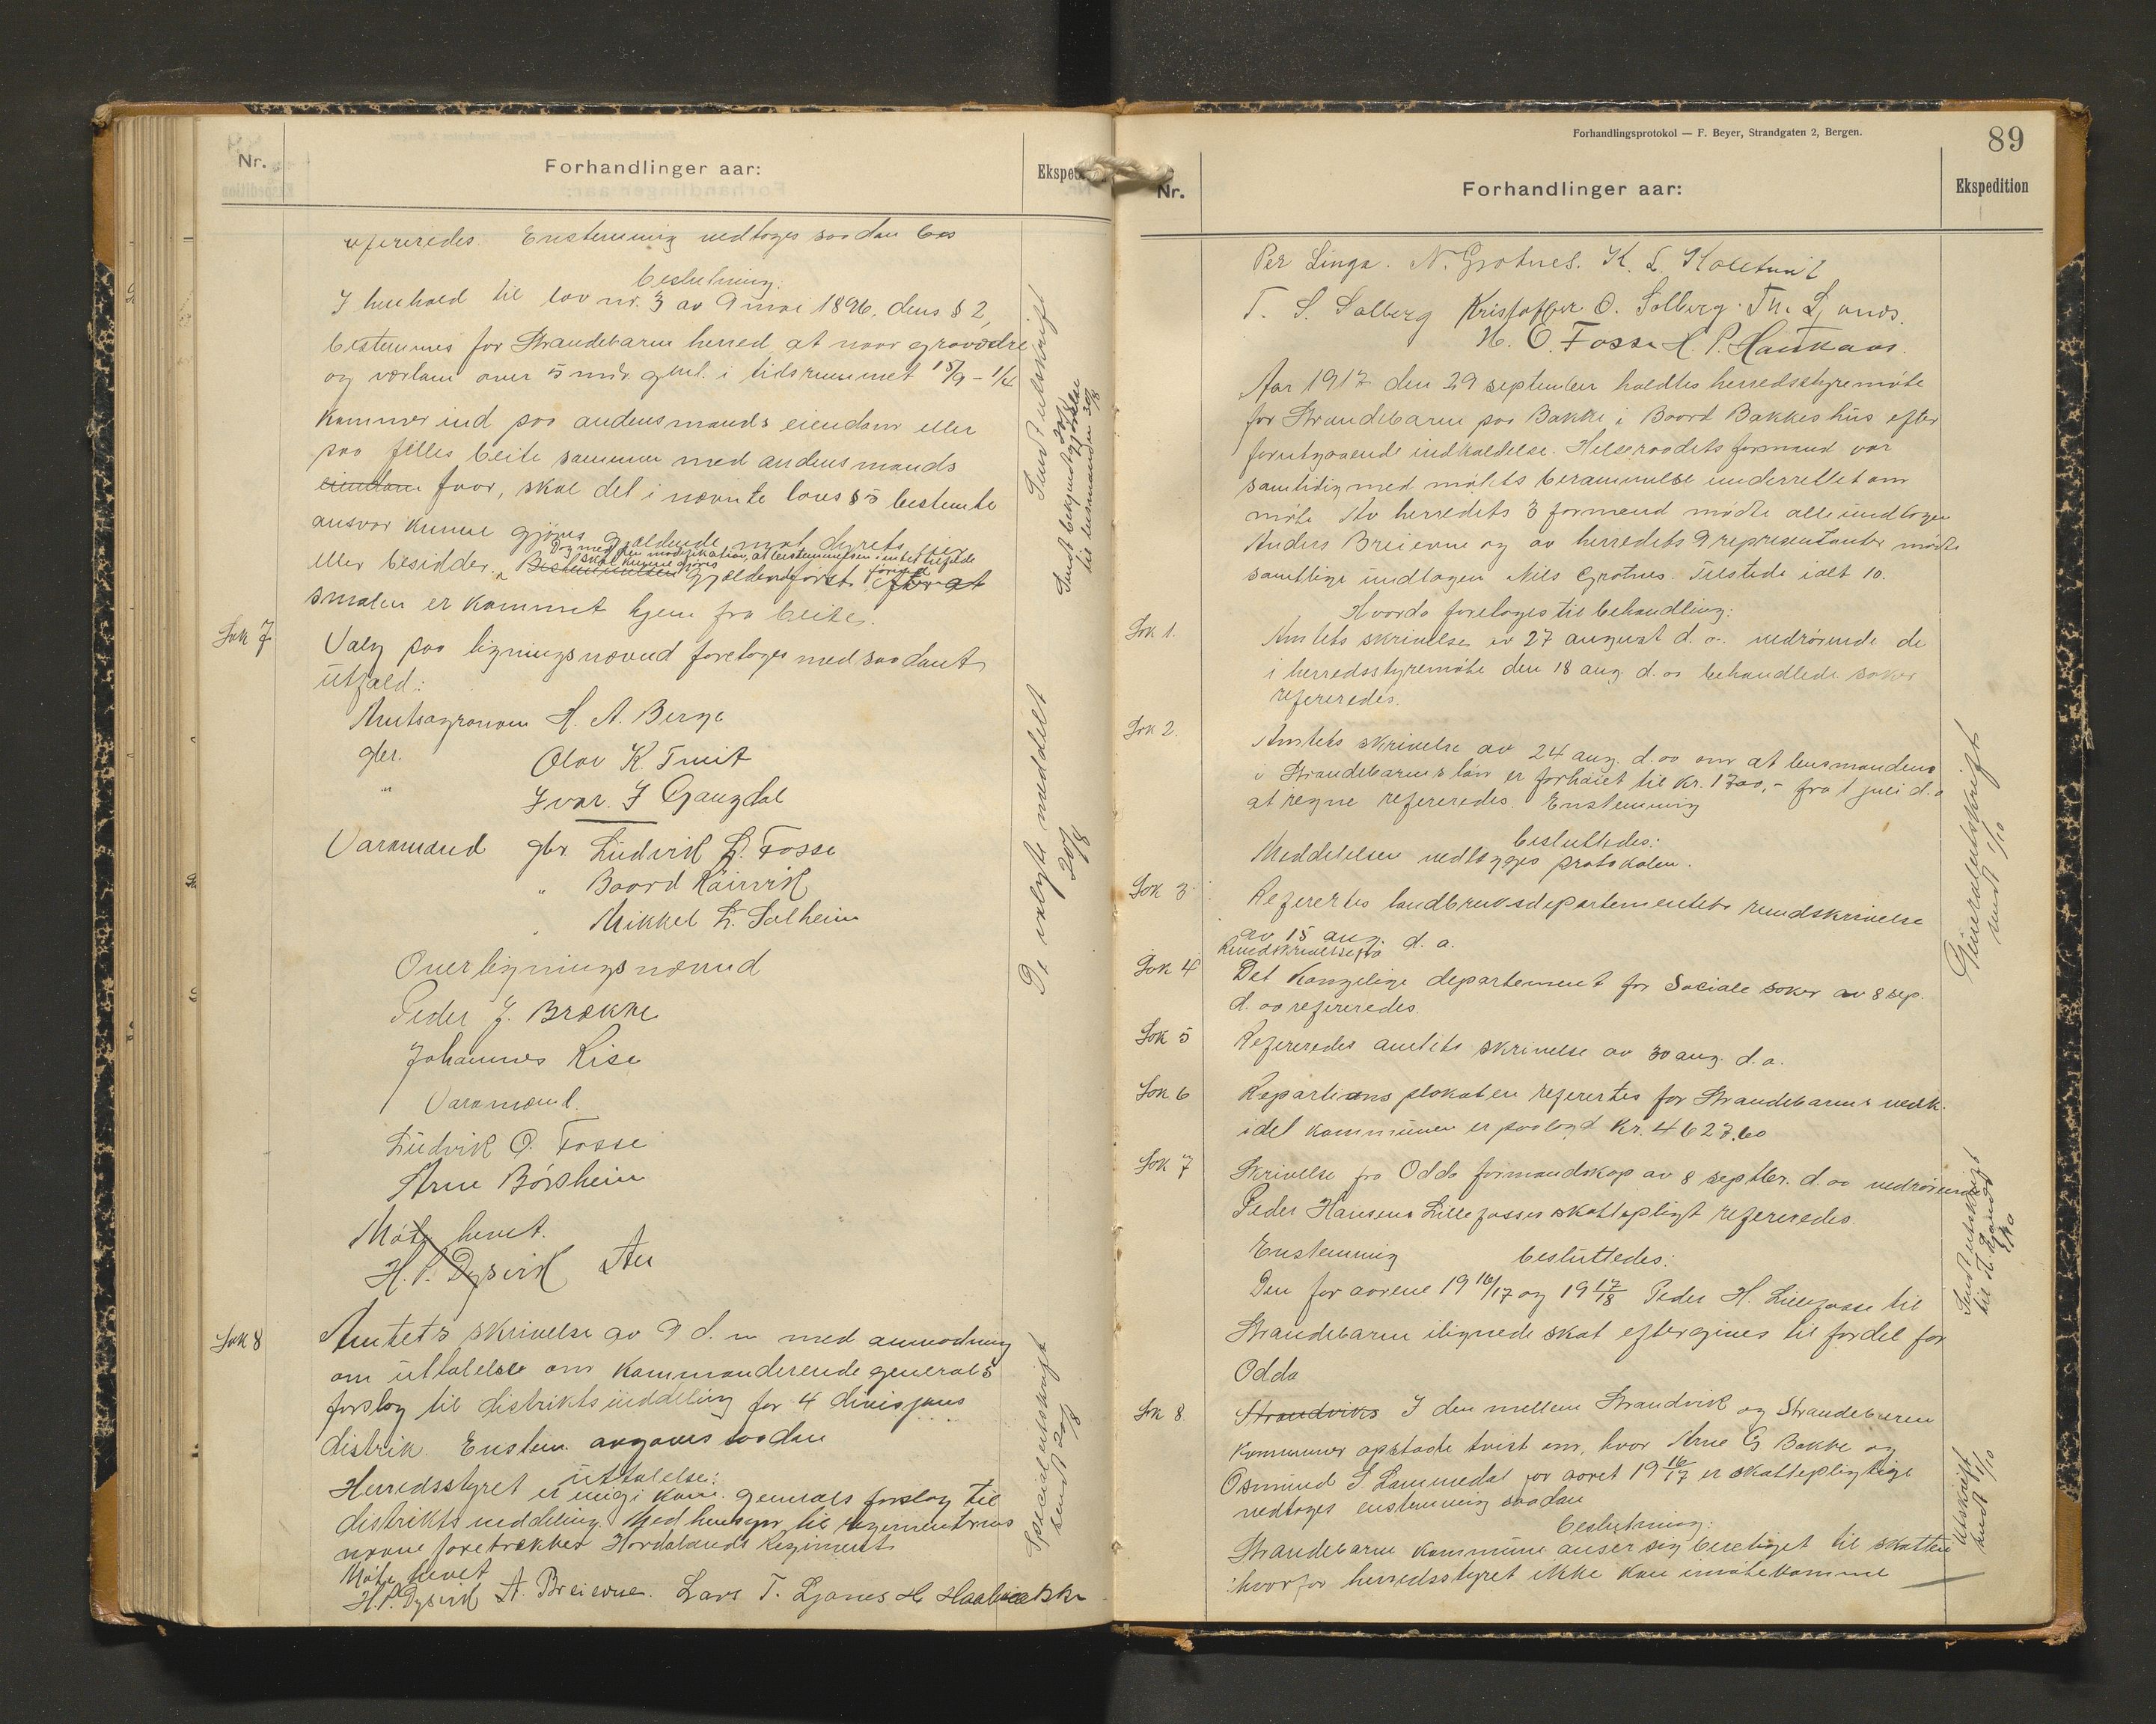 Nr.
Forhandlinger aar:
refereredes. Enstemmig vedtoges saadan bes
beslutning:
I henhold til lov nr. 3 av 9 mai 1896, dens § 2,
bestemmes for Strandebarm herred at naar gravædre
og værlam over 5 mdr. gml. i tidsrummet 15/9 - 1/4
kommer ind paa andensmands eiendom eller
paa felles beite sammen med andens mands
eiendom faar, skal det i nævnte lovs § 5 bestemte
ansvar kunne gjøres gjældende mot dyrets eier
Dog med den modifikation, at bestemmelsen i intet tilfælde
skal kunne gjøres
eller besidder. Bestemmelsen gjældende først førend efter at
smalen er kommet hjem fra beite.
Sak 7
Valg paa ligningsnævnd foretoges med saadant
utfald:
Amtsagronom H. A. Berge
gbr. Olav K. Tveit
" Ivar J Gangdal
Varamænd gbr. Ludvik L. Fosse
" Baard Røirvik
" Mikkel L. Solheim
Overligningsnævnd
Peder J. Brække
Johannes Lise
Varamænd.
Ludvik O. Fosse
Arne Børsheim
Møte hevet.
H. P. Dysvik An
Sak 8
Amtets skrivelse av 9 d. m. med anmodning
om uttalelse om kommanderende generals
forslag til distriktsinddeling for 4 divisjons
distrik. Enstem. avgaves saadan
uttalelse:
Herredsstyret er enig i kom. generals forslag til
distriktsinddeling. Med hensyn til regimentrnes
navne foretrækkes Hordalands Regiment
Møte hevet
H. P. Dysvik A. Breievne. Lars T. Ljones H Haaheim
Sendt utskrift
Sendt bekjendtgjørelse
til lensmanden 30/8
De valgte meddelt
20/8
Specialutskrift
sendt 20/8
Forhandlingsprotokol — F. Beyer, Strandgaten 2, Bergen.
89
Nr.
Forhandlinger aar:
Ekspedition
Per Linga. N. Grotnes. K. L. Koltveit
T. S. Solberg Kristoffer O. Solberg. Th. Ljones.
H. O. Fosse H P. Haukaas.
Aar 1917 den 29 september holdtes herredsstyremøte
for Strandebarm paa Bakke i Baard Bakkes hus efter
forutgaaende indkaldelse. Helseraadets formand var
samtidig med møtets berammelse underrettet om
møte. Av herredets 3 formænd mødte alle undtagen
Anders Breievne og av herredets 9 repræsentanter mødte
samtlige undtagen Nils Grotnes. Tilstede ialt 10.
Hvorda foretoges til behandling:
Sak 1.
Amtets skrivelse av 27 august d. a. vedrørende de
i herredsstyremøte den 18 aug. d. aa behandlede saker
refereredes.
Sak 2.
Amtets skrivelse av 24 aug. d. aa om at lensmandens
i Strandebarms løn er forhøiet til kr. 1700,- fra 1 juli d. a
at regne refereredes. Enstemmig
besluttedes:
Meddelelsen vedlægges protokolen.
Sak 3
Referertes landbruksdepartementets rundskrivelse
av 15 aug. d. a.
Sak 4
Rundskrivelse fra
Det kongelige departement for Sociale saker av 8 sep.
d. aa refereredes.
Sak 5
Refereredes amtets skrivelse av 30 aug. d. a.
Sak 6
Repartions plakaten referertes for Strandebarms vedk.
idet kommunen er paalagt kr. 4627.60
Sak 7
Skrivelse fra Odda formandskap av 8 septbr. d. aa vedrørende
Peder Hansens Lillefosses skattepligt refereredes.
Enstemmig besluttedes:
Den for aarene 1916/17 og 1917/18 Peder H. Lillefosse til
Strandebarm ilignede skat eftergives til fordel for
Odda
Sak 8
Strandviks I den mellem Strandvik og Strandebarm
kommuner opstaate tvist om, hvor Arne G Bakke og
Osmund S. Lammedal for aaret 1916/17 er skattepligtige
vedtoges enstemmig saadan
beslutning:
Strandebarm kommune anser sig berettiget til skatten
hvorfor herredsstyret ikke kan imøtekomme
Generalutskrift
sendt 1/10
Sendt utskrift
Utskrift
sendt 1/10